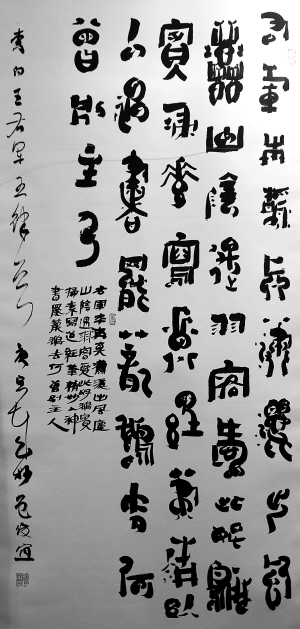 右軍本清真瀟灑出風
塵山陰過羽客愛此好鵝
賓掃素寫道經筆精妙
入神書罷籠鵝去何
曾別主人
右軍本清真瀟灑出風塵
山陰過羽客愛此好鵝賓
掃素寫道經筆精妙入神
書罷籠鵝去何曾別主人
李白王右軍五律一首庚寅